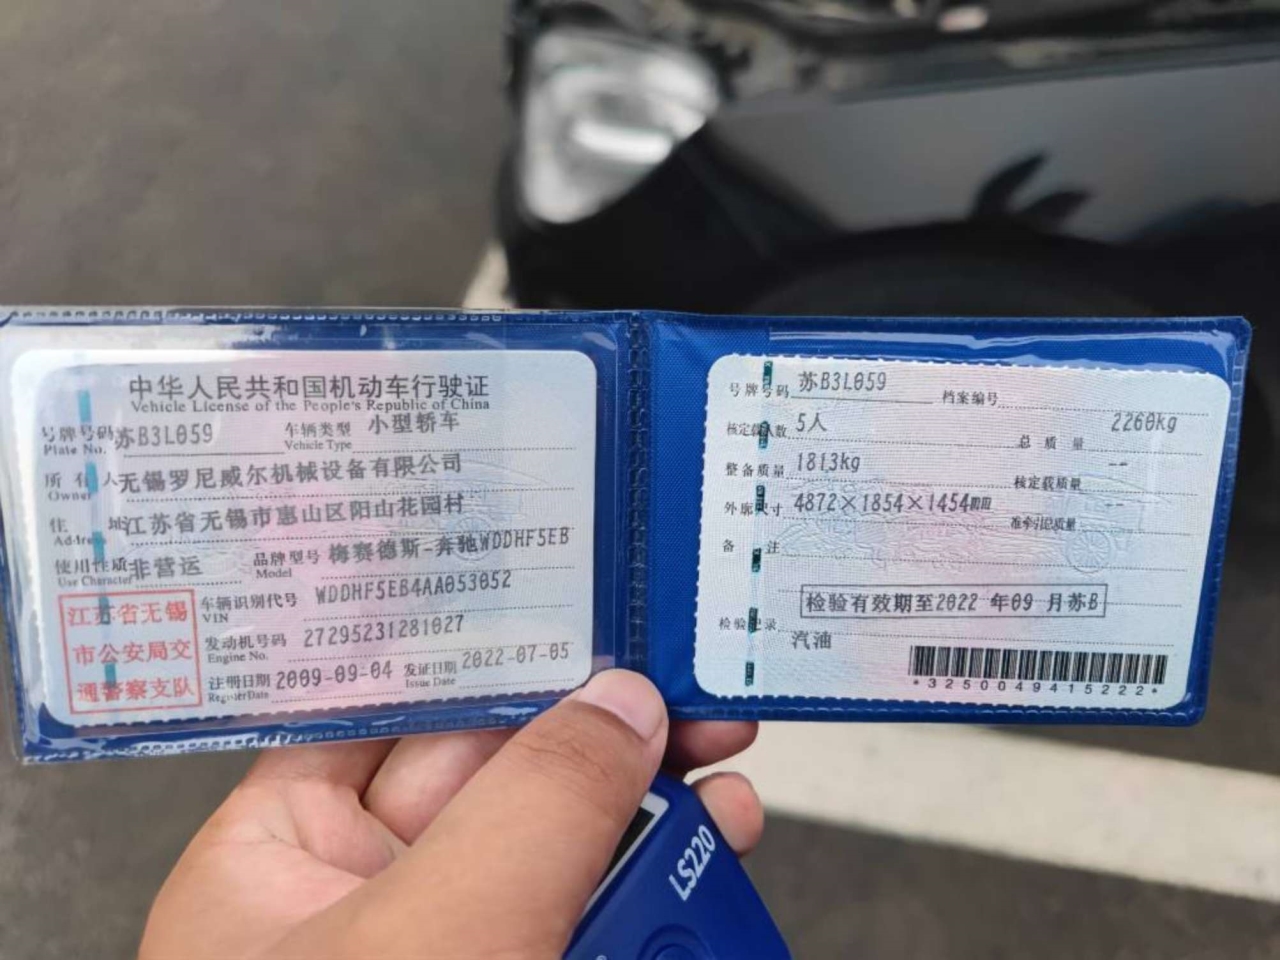 中华人民共和国机动车行驶证
Vehicle License of the People's Republic of China
号牌号码 苏B3L059 车辆类型 小型轿车
Plate No. Vehicle Type
所有人 无锡罗尼威尔机械设备有限公司
Owner
住址 江苏省无锡市惠山区阳山花园村
Address
使用性质 非营运 品牌型号 梅赛德斯-奔驰WDDHF5EB
Use Character Model
江苏省无锡
市公安局交
通警察支队
车辆识别代号 WDDHF5EB4AA053052
VIN
发动机号码 27295231281027
Engine No.
注册日期 2009-09-04 发证日期 2022-07-05
Register Date Issue Date
号牌号码 苏B3L059 档案编号
核定载人数 5人 总质量 2260kg
整备质量 1813kg 核定载质量 --
外廓尺寸 4872×1854×1454mm 准牵引总质量 --
备注
检验有效期至2022 年09 月苏B
检验记录
汽油
*3250049415222*
LS220